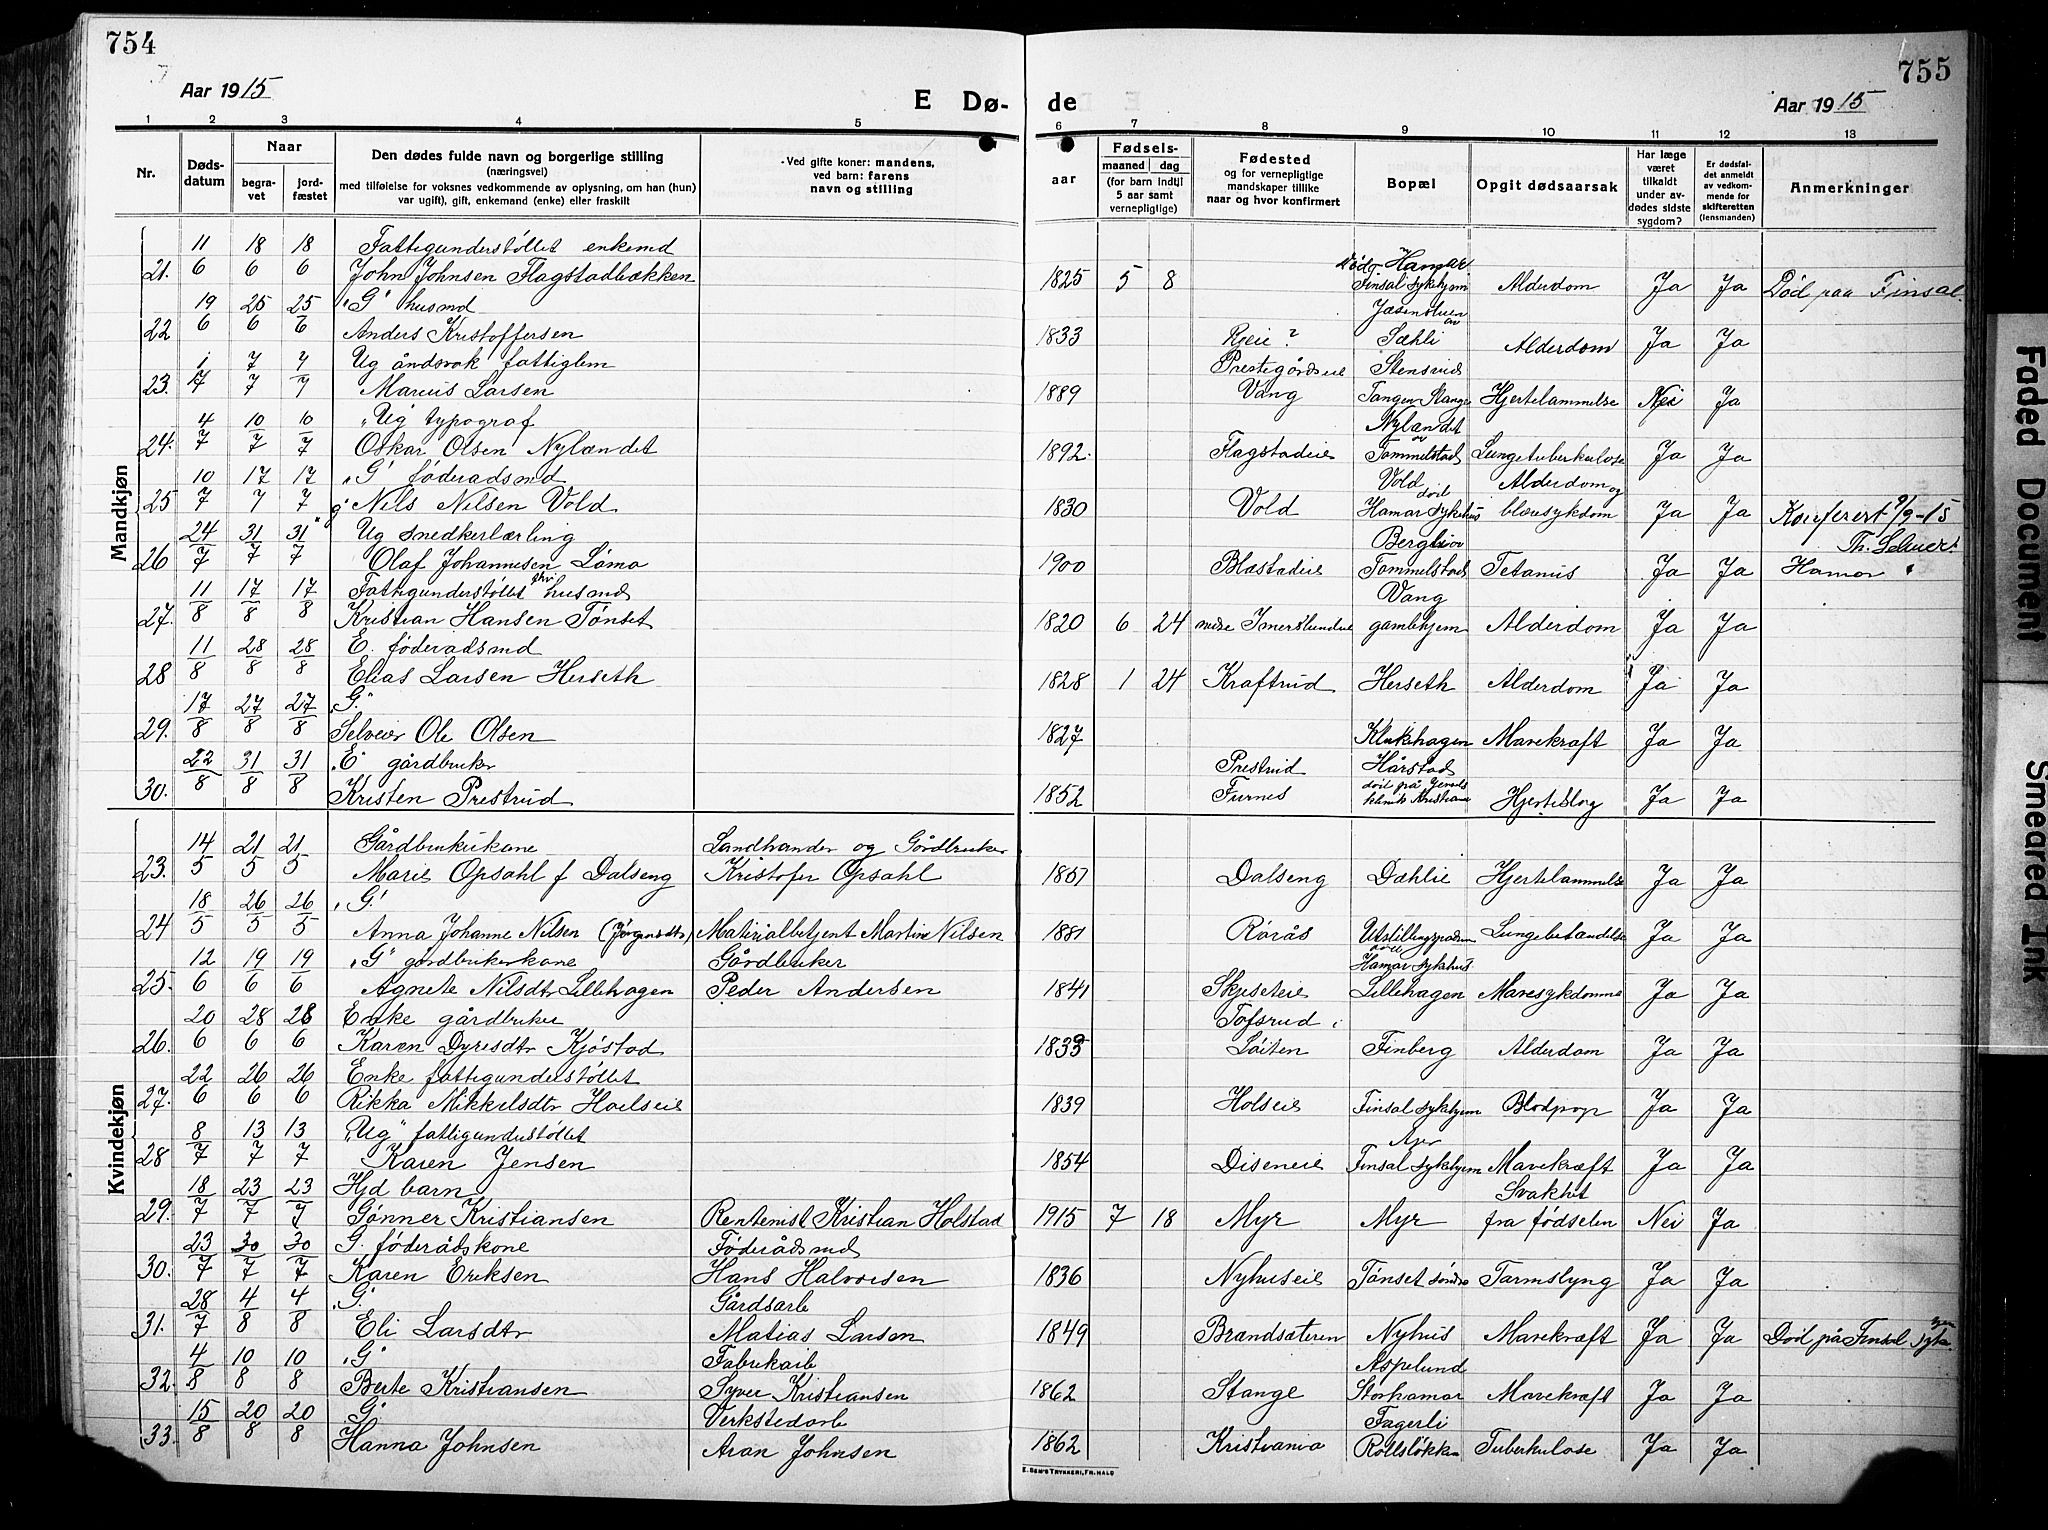 754
755
Aar 1915
E Dø-
de
Aar 1915
1 2 3 4 5 6 7 8 9 10 11 12 13
Nr.
Døds-
datum
Naar
begra-
vet
jord-
fæstet
Den dødes fulde navn og borgerlige stilling
(næringsvei)
med tilføielse for voksnes vedkommende av oplysning, om han (hun)
var ugift), gift, enkemand (enke) eller fraskilt
Ved gifte koner: mandens,
ved barn: farens
navn og stilling
Fødsels-
aar
maaned dag
(for barn indtil
5 aar samt
vernepligtige)
Fødested
og for vernepligtige
mandskaper tillike
naar og hvor konfirmert
Bopæl
Opgit dødsaarsak
Har læge
været
tilkaldt
under av-
dødes sidste
sygdom?
Er dødsfal-
det anmeldt
av vedkom-
mende for
skifteretten
(lensmanden)
Anmerkninger
Mandkjøn
11 18 18 Fattigunderstøttet enkemd Hamar
21. 6 6 6 John Johnsen Flagstadbækken 1825 5 8 Finsal sykehjem Alderdom Ja Ja Død paa Finsal.
19 25 25 "G" husmd
22 6 6 6 Anders Kristoffersen 1833 ? Sæhli Alderdom Ja Ja
1 7 7 Ug åndsvak fattiglem Prestegårdseie Stensrud
23. 7 7 7 Marius Larsen 1889 Vang Tangen Stange Hjertelammelse Nei Ja
4 10 10 "Ug" typograf Nylændet
24. 7 7 7 Oskar Olsen Nylændet 1892. Flagstadeie Tommelstad Lungetuberkulose Ja Ja
10 17 17 "G" føderadsmd Vold død Alderdom og
25 7 7 7 Nils Nilsen Vold 1830 Vold Hamar sykehus blæresykdom Ja Ja Konferert 9/9-15
24 31 31 Ug snedkerlærling Th.
26 7 7 7 Olaf Johannesen Lømo 1900 Blæstadeie Tommelstad Tetanus Ja Ja Hamar
11 17 17 Fattigunderstøttet husmd Vang
27. 8 8 8 Kristian Hansen Tønset 1820 6 24 gamlehjem Alderdom Ja Ja
11 28 28 E. føderadsmd
28 8 8 8 Elias Larsen Herseth 1828 1 24 Kraftrud Herseth Alderdom Ja Ja
17 27 27 "G"
29. 8 8 8 Selveier Ole Olsen 1827 Klukehagen Mavekræft Ja Ja
22 31 31 "E" gårdbruker Prestrud Hårstad
30. 8 8 8 Kristen Prestrud 1852 Furnes død på Hjerteslag Ja Ja
Kvindekjøn
14 21 21 Gårdbrukerkone Landhandler og Gårdbruker
23. 5 5 5 Marie Opsahl f Dalseng Kristofer Opsahl 1857 Dalseng Dæhlie Hjertelammelse Ja Ja
18 26 26 "G"
24 5 5 5 Anna Johanne Nilsen (Jørgensdtr) Materialbetjent Martin Nilsen 1881 Rørås Lungebetændelse Ja Ja
12 19 19 "G" gårdbrukerkone Gårdbruker Hamar sykehus
25. 6 6 6 Agnete Nilsdtr Lillehagen Peder Andersen 1841 Skjeseteie Lillehagen Mavesykdomme Ja Ja
20 28 28 Enke gårdbruker Tofsrud i
26. 6 6 6 Karen Dyresdtr Kjøstad 1833 Løiten Finberg Alderdom Ja Ja
22 26 26 Enke fattigunderstøttet
27. 6 6 6 Rikka Mikkelsdtr Hoelseie 1839 Holseie Finsal sykehjem Blodprop Ja Ja
8 13 13 "Ug" fattigunderstøttet Ajer
28 7 7 7 Karen Jensen 1854 Diseneie Finsal sykehjem Mavekræft Ja Ja
18 23 23 Hjd barn Svakhet
29. 7 7 7 Gønner Kristiansen Rentenist Kristian Holstad 1915 7 18 Myr Myr fra fødselen Nei Ja
23 30 30 G. føderådskone Føderådsmd
30. 7 7 7 Karen Eriksen Hans Halvorsen 1836 Nyhuseie Tønset søndre Tarmslyng Ja Ja
28 4 4 "G" Gårdsarb
31. 7 8 8 Eli Larsdtr Matias Larsen 1849 Brændsæteren Nyhus Mavekræft Ja Ja Død på Finsal
4 10 10 "G" Fabrikarb Aspelund
32. 8 8 8 Berte Kristiansen Syver Kristiansen 1862 Stange Storhamar Mavekræft Ja Ja
15 20 20 "G" Verkstedarb Fagerli
33. 8 8 8 Hanna Johnsen Aran Johnsen 1862 Kristiania Rollsløkken Tuberkulose Ja Ja
E. SEM'S TRYKKERI, FR. HALD
Faded Document
Smeared Ink